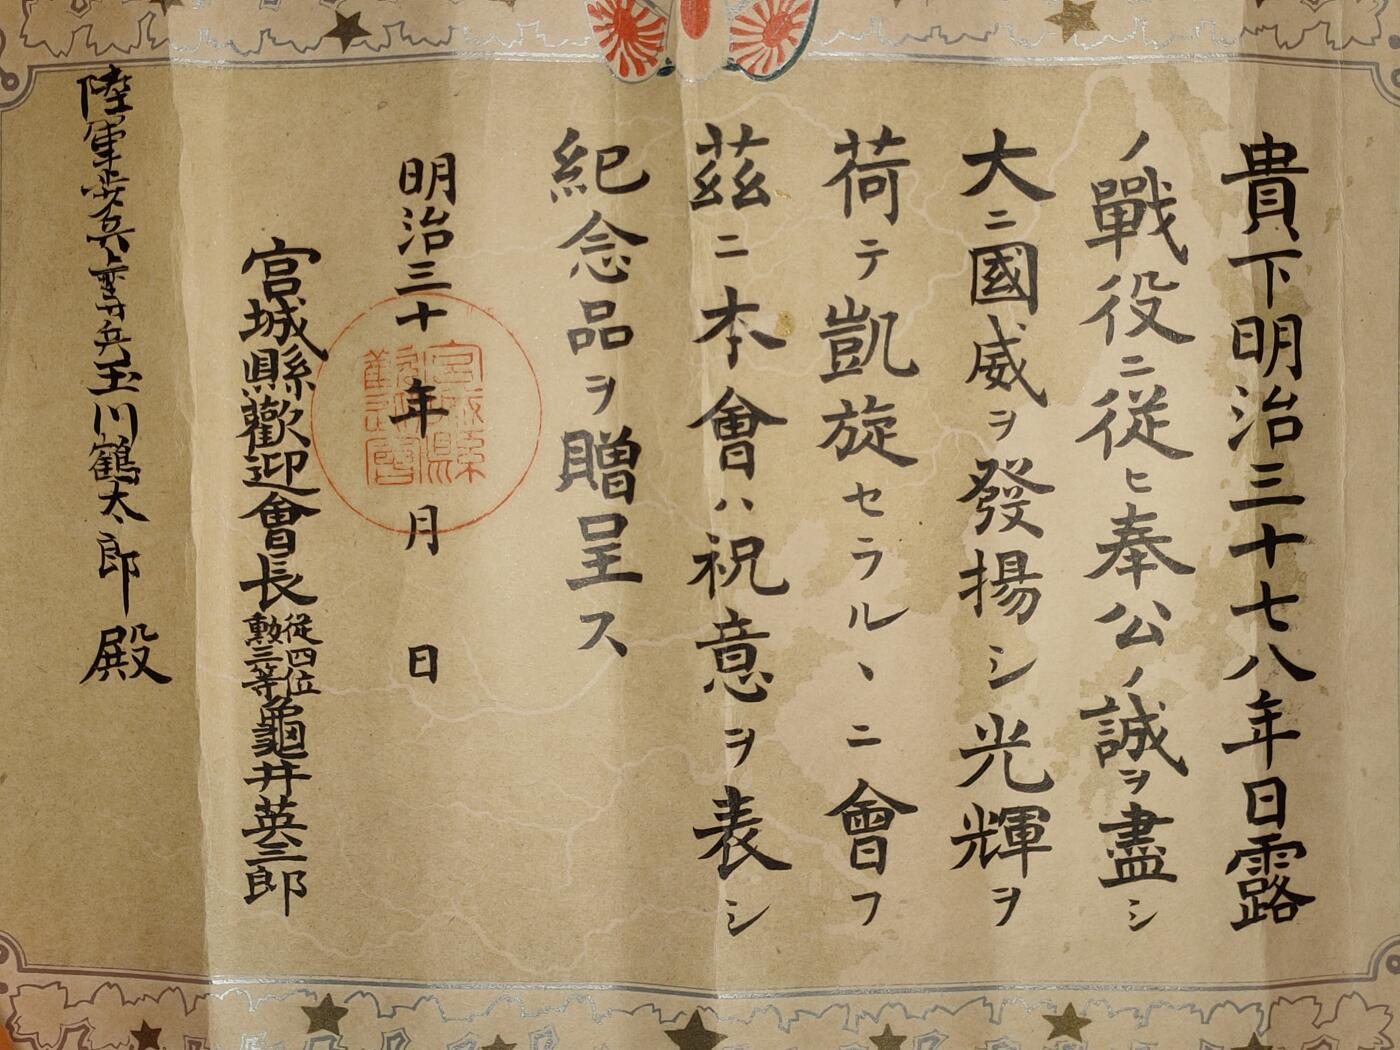 貴下明治三十七八年日露
ノ戰役ニ従ヒ奉公ノ誠ヲ盡シ
大ニ國威ヲ發揚シ光輝ヲ
荷テ凱旋セラルヽニ會フ
茲ニ本會ハ祝意ヲ表シ
紀念品ヲ贈呈ス
明治三十年月日
宮城縣歡迎會
宮城縣歡迎會長従四位勲三等龜井英三郎
陸軍歩兵上等兵玉川鶴太郎殿